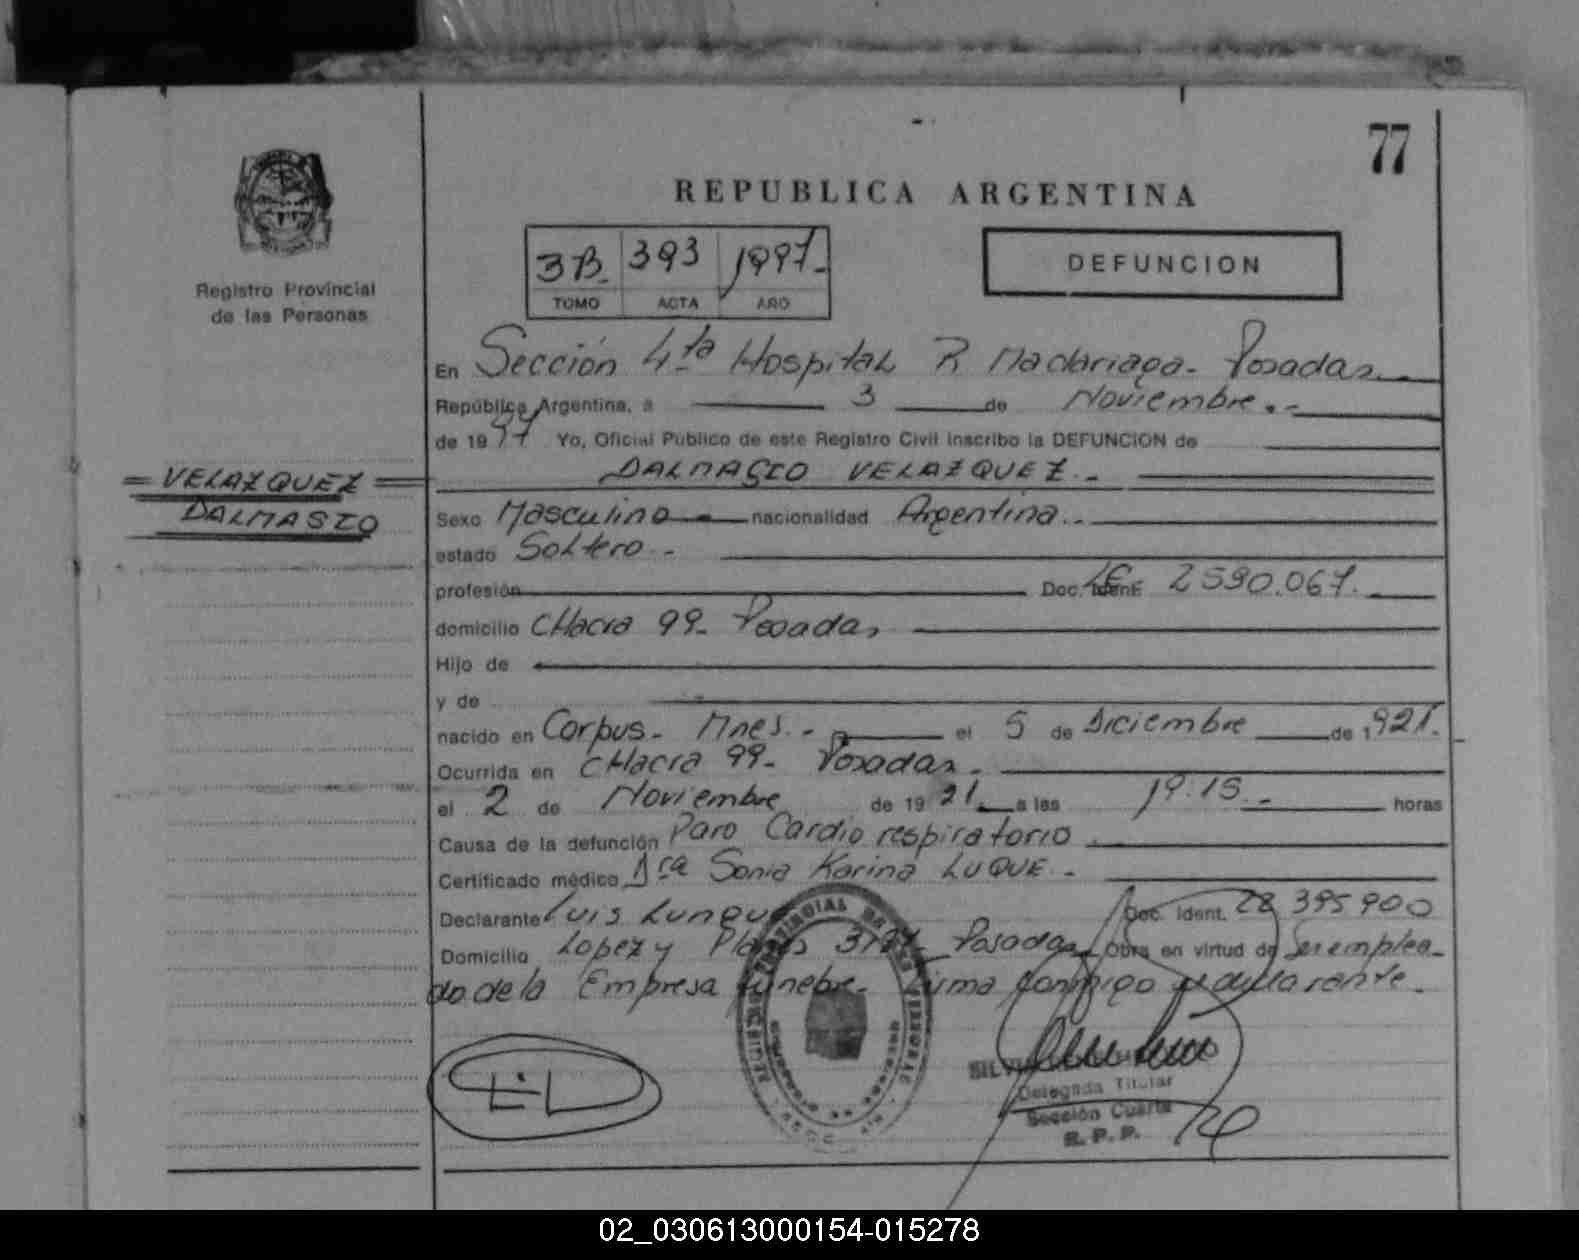 77
REPUBLICA ARGENTINA
3B. 393 1997.
TOMO ACTA AÑO
DEFUNCION
Registro Provincial
de las Personas
En Sección 4ta Hospital R Madariaga. Posadas.
República Argentina, a 3 de Noviembre.
de 1997 Yo, Oficial Público de este Registro Civil inscribo la DEFUNCION de
DALMASIO VELAZQUEZ.
VELAZQUEZ
DALMASIO
Sexo Masculino nacionalidad Argentina.
estado Soltero.
profesión Doc. Ident. LE 2590.067.
domicilio CHacra 99. Posadas
Hijo de
y de
nacido en Corpus. Mnes. el 5 de Diciembre de 1921.
Ocurrida en CHacra 99. Posadas.
el 2 de Noviembre de 19 21 a las 19.15. horas
Causa de la defunción Paro Cardio respiratorio
Certificado médico Dra Sonia Karina LUQUE.
Declarante Luis Lunque Doc. Ident. 28 395 900
Domicilio Lopez y Planes Posadas Obra en virtud de Ser emplea-
do de la Empresa funebre. Firma conmigo y declarante.
Delegada Titular
Sección Cuarta
R. P. P.
02_030613000154-015278